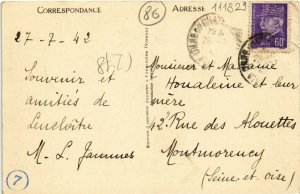 CORRESPONDANCE
ADRESSE
86
111829
27-7-42
8421
Souvenir et
amitiés de
Lencloître
M-L. Jammes
7
Monsieur et Madame
Houaleine et leur
mère
42 Rue des Alouettes
Montmorency
(Seine et oise)
60